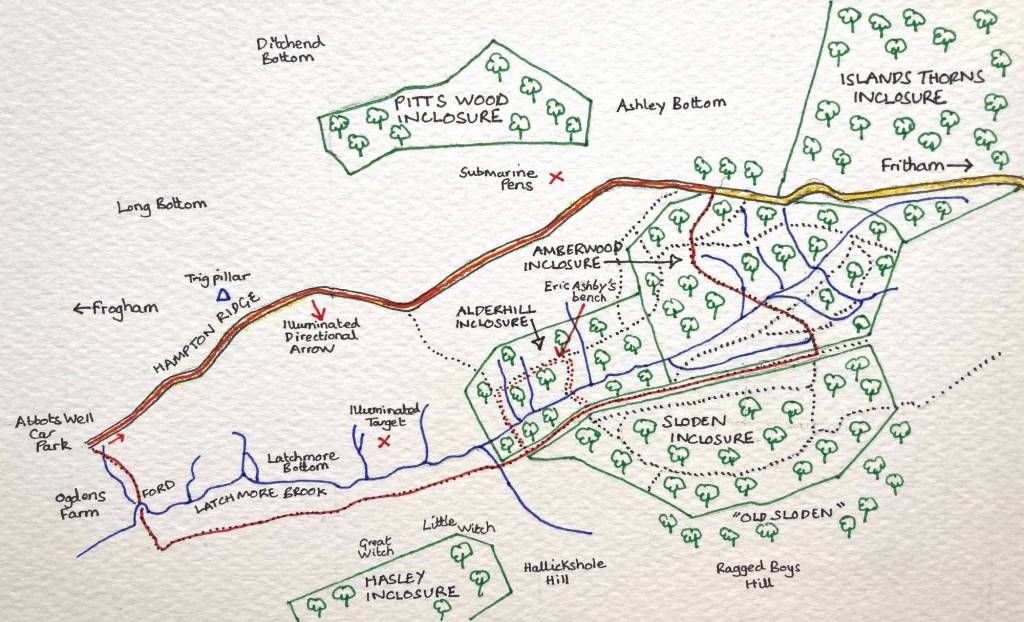 Ditchend
Bottom
PITTS WOOD
INCLOSURE
Ashley Bottom
ISLANDS THORNS
INCLOSURE
Fritham →
Submarine
Pens
Long Bottom
Trig pillar
← Frogham
HAMPTON RIDGE
Illuminated
Directional
Arrow
AMBERWOOD
INCLOSURE
Eric Ashby's
bench
ALDERHILL
INCLOSURE
Abbots Well
Car
Park
Illuminated
Target
Latchmore
Bottom
SLODEN
INCLOSURE
Ogdens
Farm
FORD
LATCHMORE BROOK
"OLD SLODEN"
Little Witch
Great
Witch
HASLEY
INCLOSURE
Hallickshole
Hill
Ragged Boys
Hill